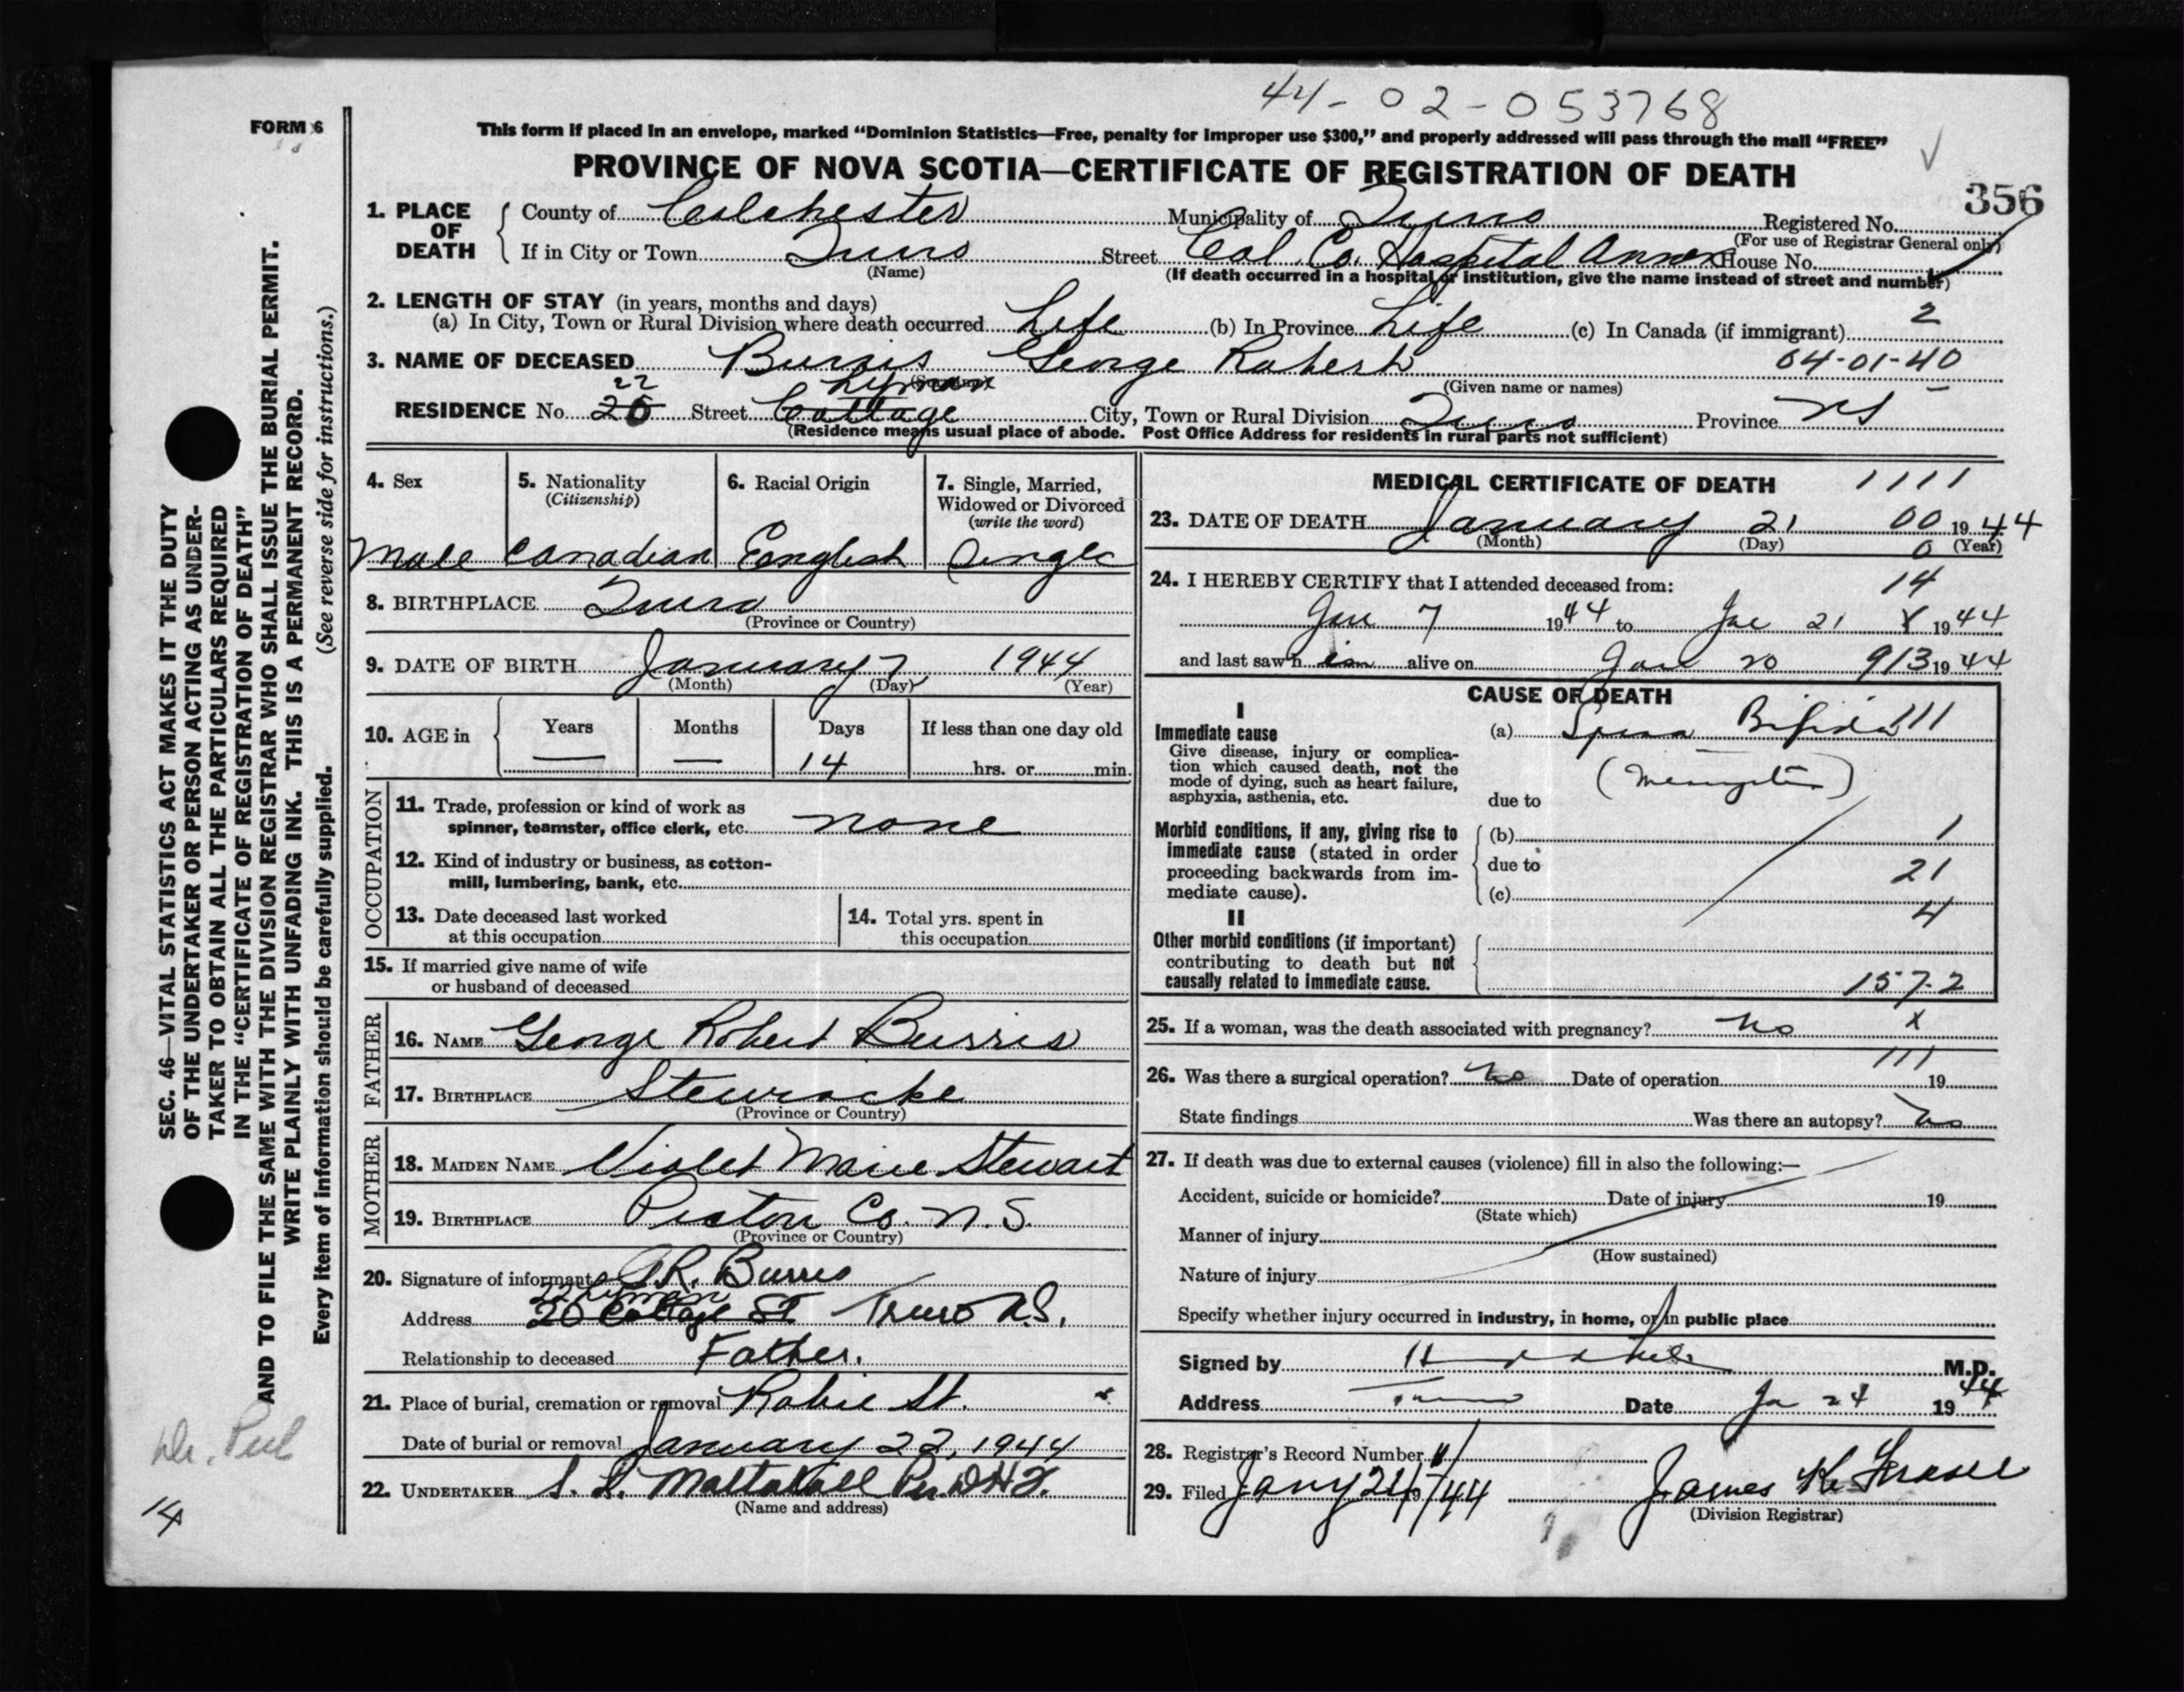 44-02-053768
FORM 6
This form if placed in an envelope, marked "Dominion Statistics—Free, penalty for improper use $300," and properly addressed will pass through the mail "FREE"
PROVINCE OF NOVA SCOTIA—CERTIFICATE OF REGISTRATION OF DEATH
356
1. PLACE OF DEATH
County of Colchester Municipality of Truro Registered No.
(For use of Registrar General only)
If in City or Town Truro Street Col. Co. Hospital Annex House No.
(Name) (If death occurred in a hospital or institution, give the name instead of street and number)
2. LENGTH OF STAY (in years, months and days)
(a) In City, Town or Rural Division where death occurred Life (b) In Province Life (c) In Canada (if immigrant) 2
3. NAME OF DECEASED Burris George Robert 04-01-40
(Surname) (Given name or names)
22 Lyman
RESIDENCE No. 20 Street Cottage City, Town or Rural Division Truro Province NS
(Residence means usual place of abode. Post Office Address for residents in rural parts not sufficient)
4. Sex
Male
5. Nationality
(Citizenship)
Canadian
6. Racial Origin
English
7. Single, Married,
Widowed or Divorced
(write the word)
Single
8. BIRTHPLACE Truro
(Province or Country)
9. DATE OF BIRTH January 7 1944
(Month) (Day) (Year)
10. AGE in Years — Months — Days 14 If less than one day old
hrs. or min.
OCCUPATION
11. Trade, profession or kind of work as
spinner, teamster, office clerk, etc. none
12. Kind of industry or business, as cotton-
mill, lumbering, bank, etc.
13. Date deceased last worked
at this occupation
14. Total yrs. spent in
this occupation
15. If married give name of wife
or husband of deceased
FATHER
16. NAME George Robert Burris
17. BIRTHPLACE Stewiacke
(Province or Country)
MOTHER
18. MAIDEN NAME Violet Marie Stewart
19. BIRTHPLACE Pictou Co. N.S.
(Province or Country)
20. Signature of informant G.R. Burris
22 Lyman
Address 20 Cottage St Truro N.S.
Relationship to deceased Father.
21. Place of burial, cremation or removal Robie St.
Date of burial or removal January 22, 1944
22. UNDERTAKER Mattatall Per.
(Name and address)
MEDICAL CERTIFICATE OF DEATH 1111
23. DATE OF DEATH January 21 00 1944
(Month) (Day) 0 (Year)
24. I HEREBY CERTIFY that I attended deceased from: 14
Jan 7 1944 to Jan 21 X 1944
and last saw h im alive on Jan 20 913 1944
CAUSE OF DEATH
I
Immediate cause
Give disease, injury or complica-
tion which caused death, not the
mode of dying, such as heart failure,
asphyxia, asthenia, etc.
(a) Spina Bifida 111
due to
Morbid conditions, if any, giving rise to
immediate cause (stated in order
proceeding backwards from im-
mediate cause).
(b) 1
due to 21
(c)
4
II
Other morbid conditions (if important)
contributing to death but not
causally related to immediate cause.
157.2
25. If a woman, was the death associated with pregnancy? No X
111
26. Was there a surgical operation? No Date of operation 19
State findings Was there an autopsy? No
27. If death was due to external causes (violence) fill in also the following:—
Accident, suicide or homicide? Date of injury 19
(State which)
Manner of injury
(How sustained)
Nature of injury
Specify whether injury occurred in industry, in home, or in public place
Signed by M.D.
Address Truro Date Ja 24 1944
28. Registrar's Record Number
29. Filed Jany 24/44 James K. Fraser
(Division Registrar)
SEC. 46—VITAL STATISTICS ACT MAKES IT THE DUTY
OF THE UNDERTAKER OR PERSON ACTING AS UNDER-
TAKER TO OBTAIN ALL THE PARTICULARS REQUIRED
IN THE "CERTIFICATE OF REGISTRATION OF DEATH"
AND TO FILE THE SAME WITH THE DIVISION REGISTRAR WHO SHALL ISSUE THE BURIAL PERMIT.
WRITE PLAINLY WITH UNFADING INK. THIS IS A PERMANENT RECORD.
Every item of information should be carefully supplied. (See reverse side for instructions.)
14